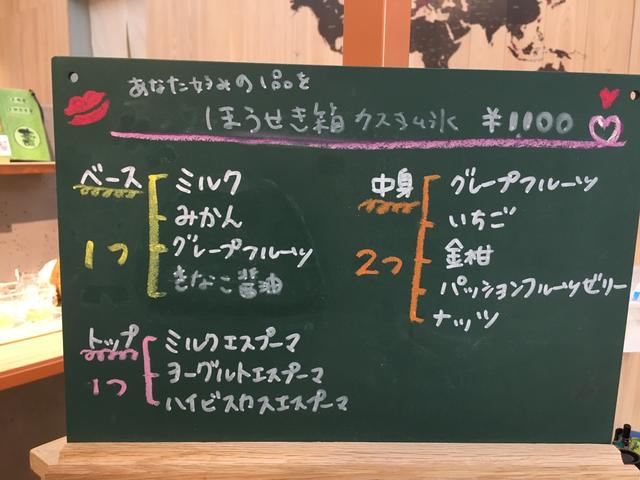 あなた好みの1品を
ほうせき箱 カスタム氷 ¥1100
ベース
1つ
ミルク
みかん
グレープフルーツ
きなこ醤油
中身
2つ
グレープフルーツ
いちご
金柑
パッションフルーツゼリー
ナッツ
トップ
1つ
ミルクエスプーマ
ヨーグルトエスプーマ
ハイビスカスエスプーマ